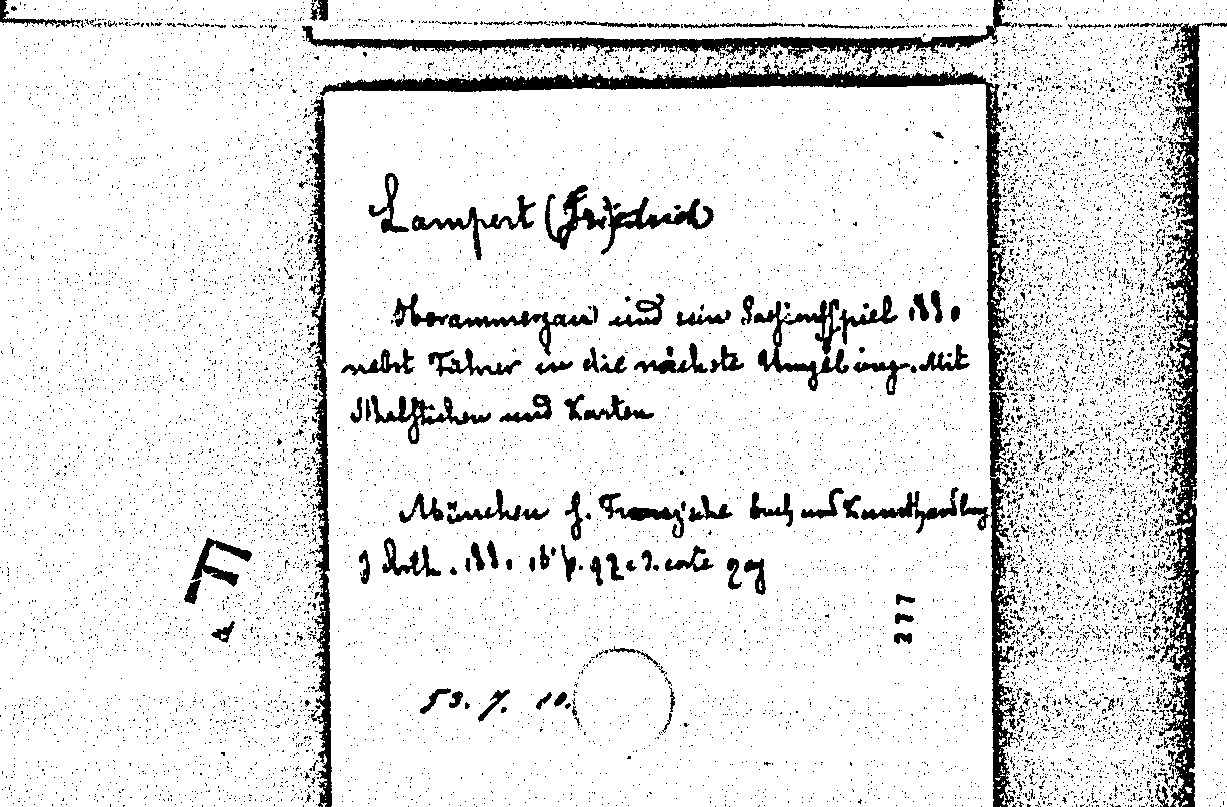 Lampert (Friedrich)
Oberammergau und sein Passionsspiel 1880
nebst Führer in die nächste Umgebung. Mit
Stahlstichen und Karten
München H. Franz'sche Buch und Kunsthandlung
J Roth. 1880 16° p. 92 c 3. carte
53. 7. 10.
377
F